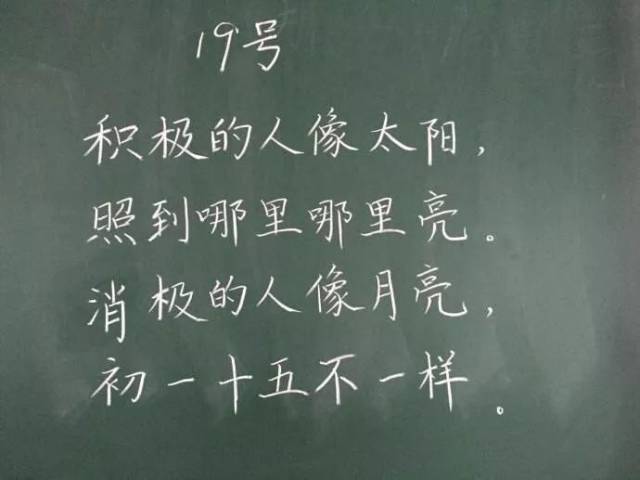 19号
积极的人像太阳，
照到哪里哪里亮。
消极的人像月亮，
初一十五不一样。